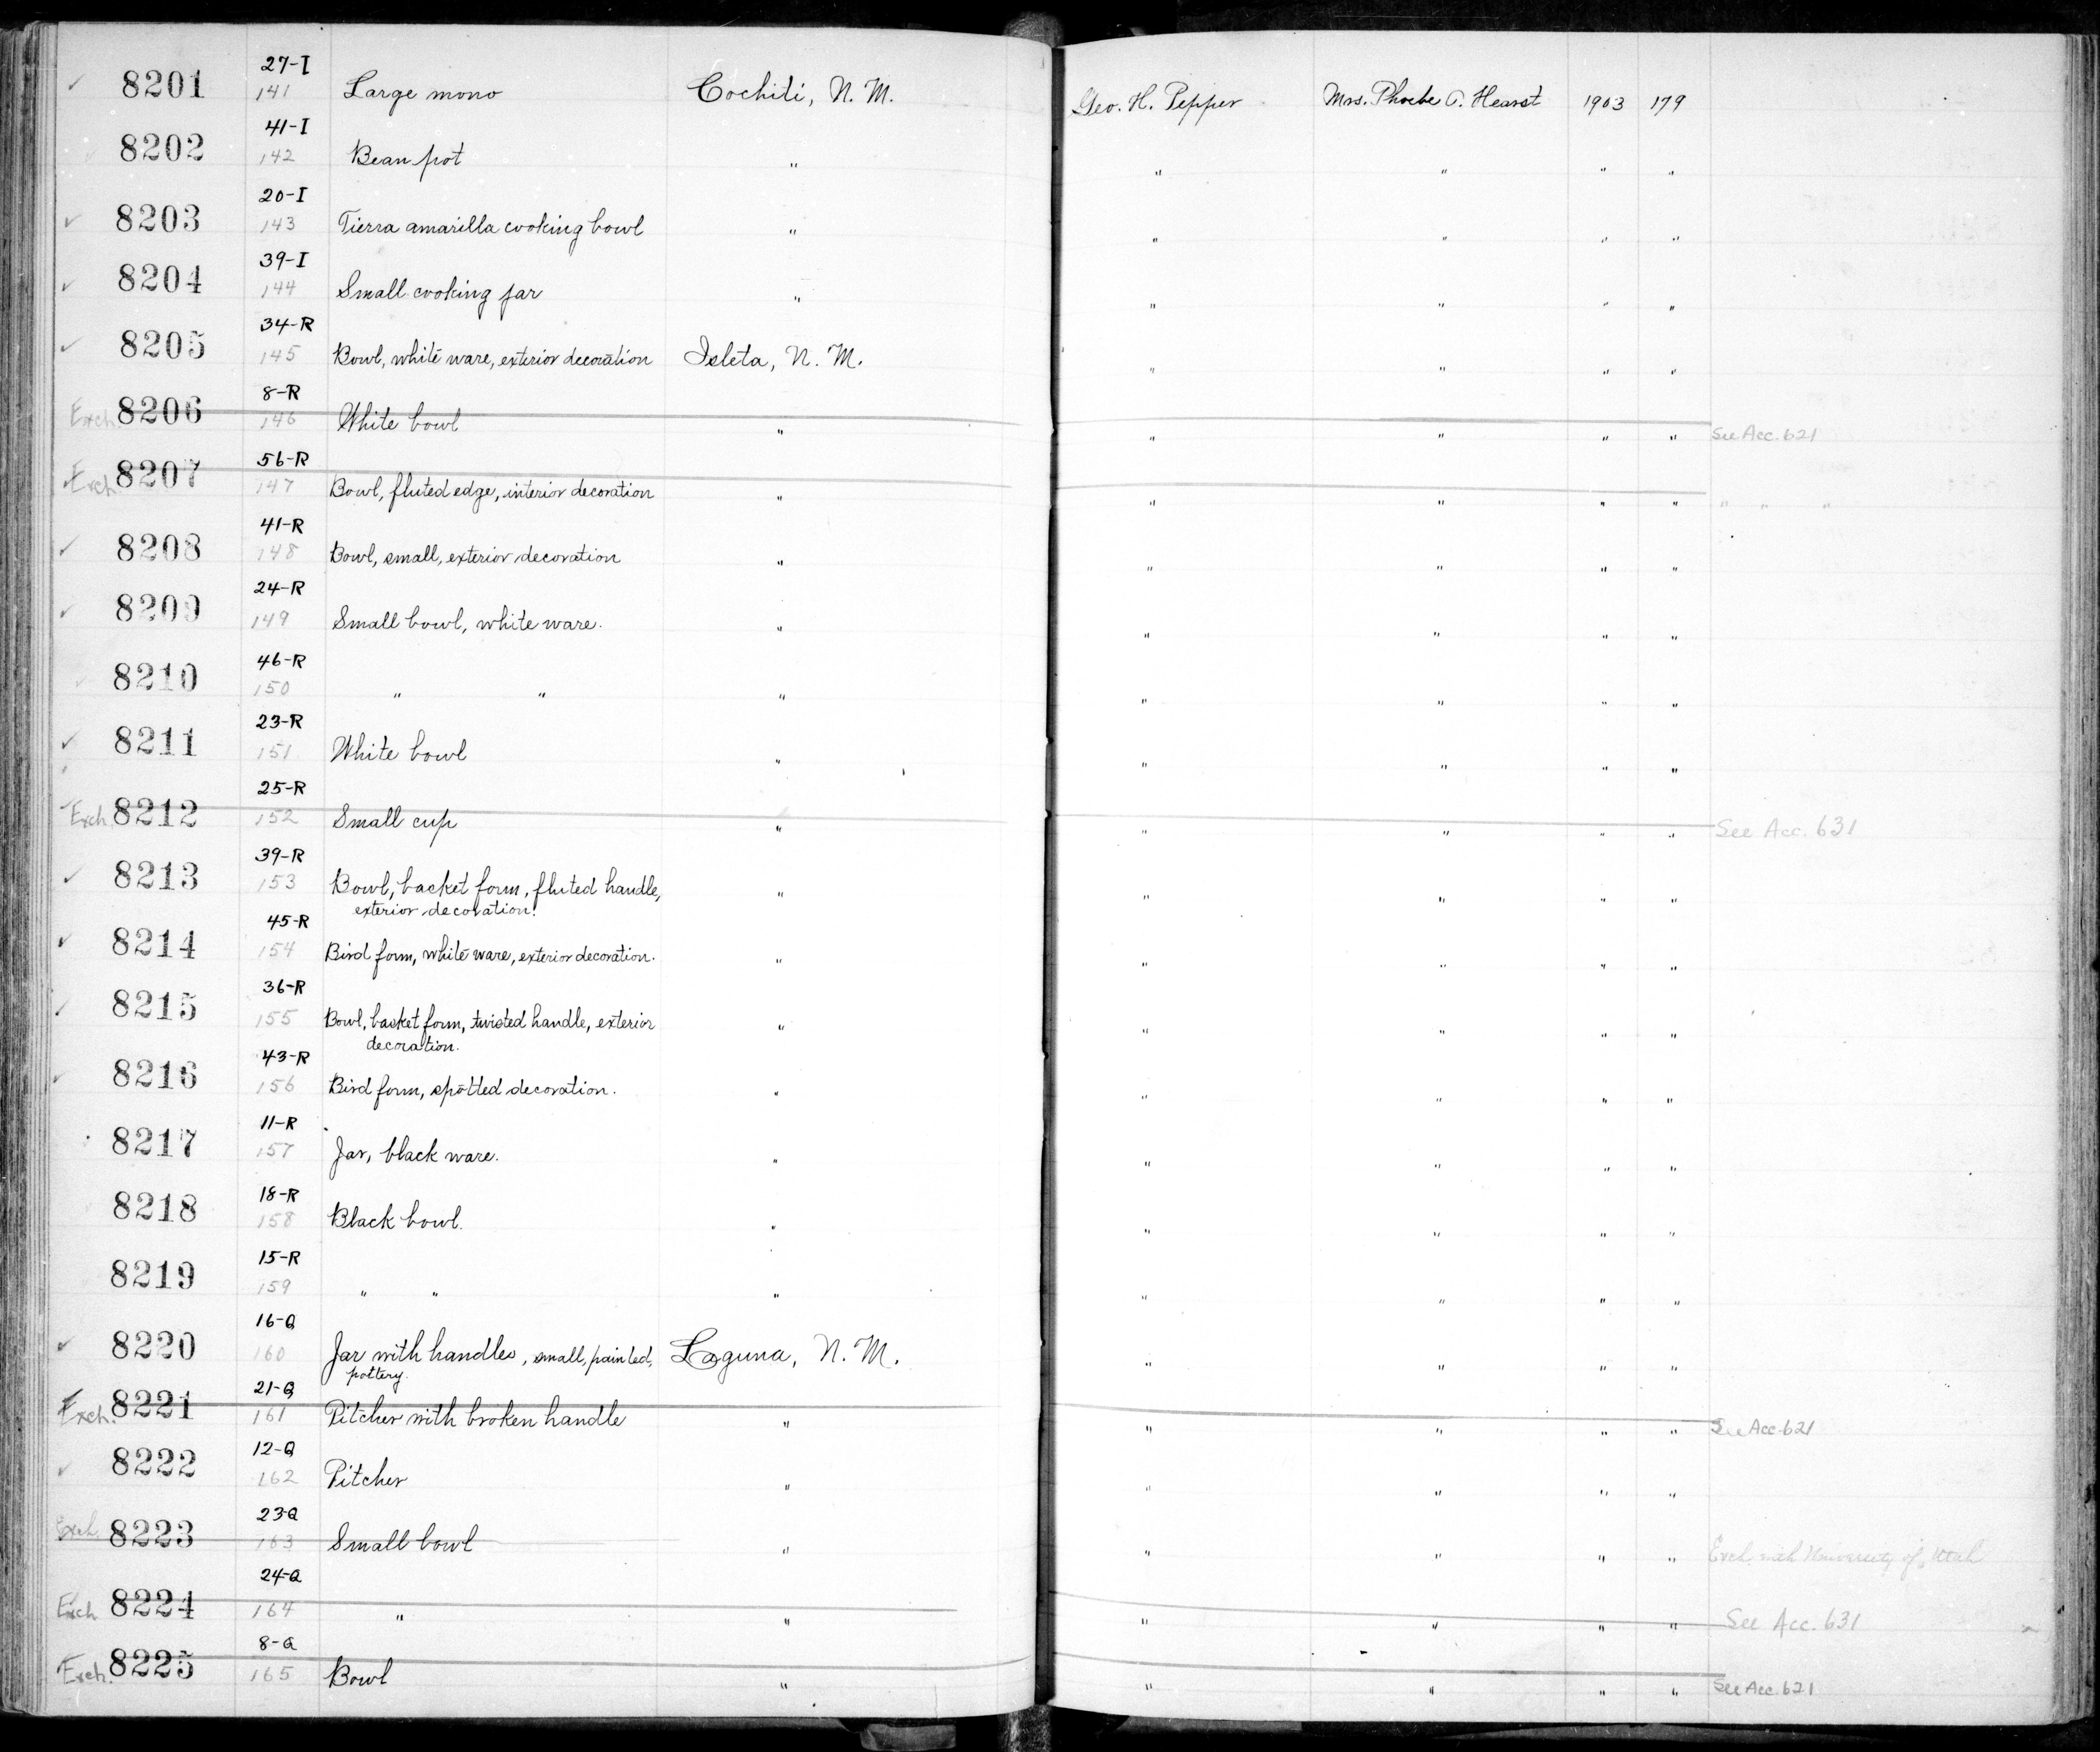 8201 27-I 141 Large mono Cochiti, N. M. Geo. H. Pepper Mrs. Phoebe A. Hearst 1903 179
8202 41-I 142 Bean pot " " " " "
8203 20-I 143 Tierra amarilla cooking bowl " " " " "
8204 39-I 144 Small cooking jar " " " " "
8205 34-R 145 Bowl, white ware, exterior decoration Isleta, N. M. " " " "
Exch. 8206 8-R 146 White bowl " " " " " See Acc. 621
Exch. 8207 56-R 147 Bowl, fluted edge, interior decoration " " " " " " " "
8208 41-R 148 Bowl, small, exterior decoration " " " " "
8209 24-R 149 Small bowl, white ware. " " " " "
8210 46-R 150 " " " " " " "
8211 23-R 151 White bowl " " " " "
Exch. 8212 25-R 152 Small cup " " " " " See Acc. 631
8213 39-R 153 Bowl, basket form, fluted handle, " " " " "
exterior decoration.
8214 45-R 154 Bird form, white ware, exterior decoration. " " " " "
8215 36-R 155 Bowl, basket form, twisted handle, exterior " " " " "
decoration.
8216 43-R 156 Bird form, spotted decoration. " " " " "
8217 11-R 157 Jar, black ware. " " " " "
8218 18-R 158 Black bowl. " " " " "
8219 15-R 159 " " " " " " "
8220 16-Q 160 Jar with handles, small, painted, Laguna, N. M. " " " "
pottery.
Exch. 8221 21-Q 161 Pitcher with broken handle " " " " " See Acc. 621
8222 12-Q 162 Pitcher " " " " "
Exch. 8223 23-Q 163 Small bowl " " " " " Exch. with University of Utah
Exch 8224 24-Q 164 " " " " " " See Acc. 631
Exch. 8225 8-Q 165 Bowl " " " " " See Acc. 621